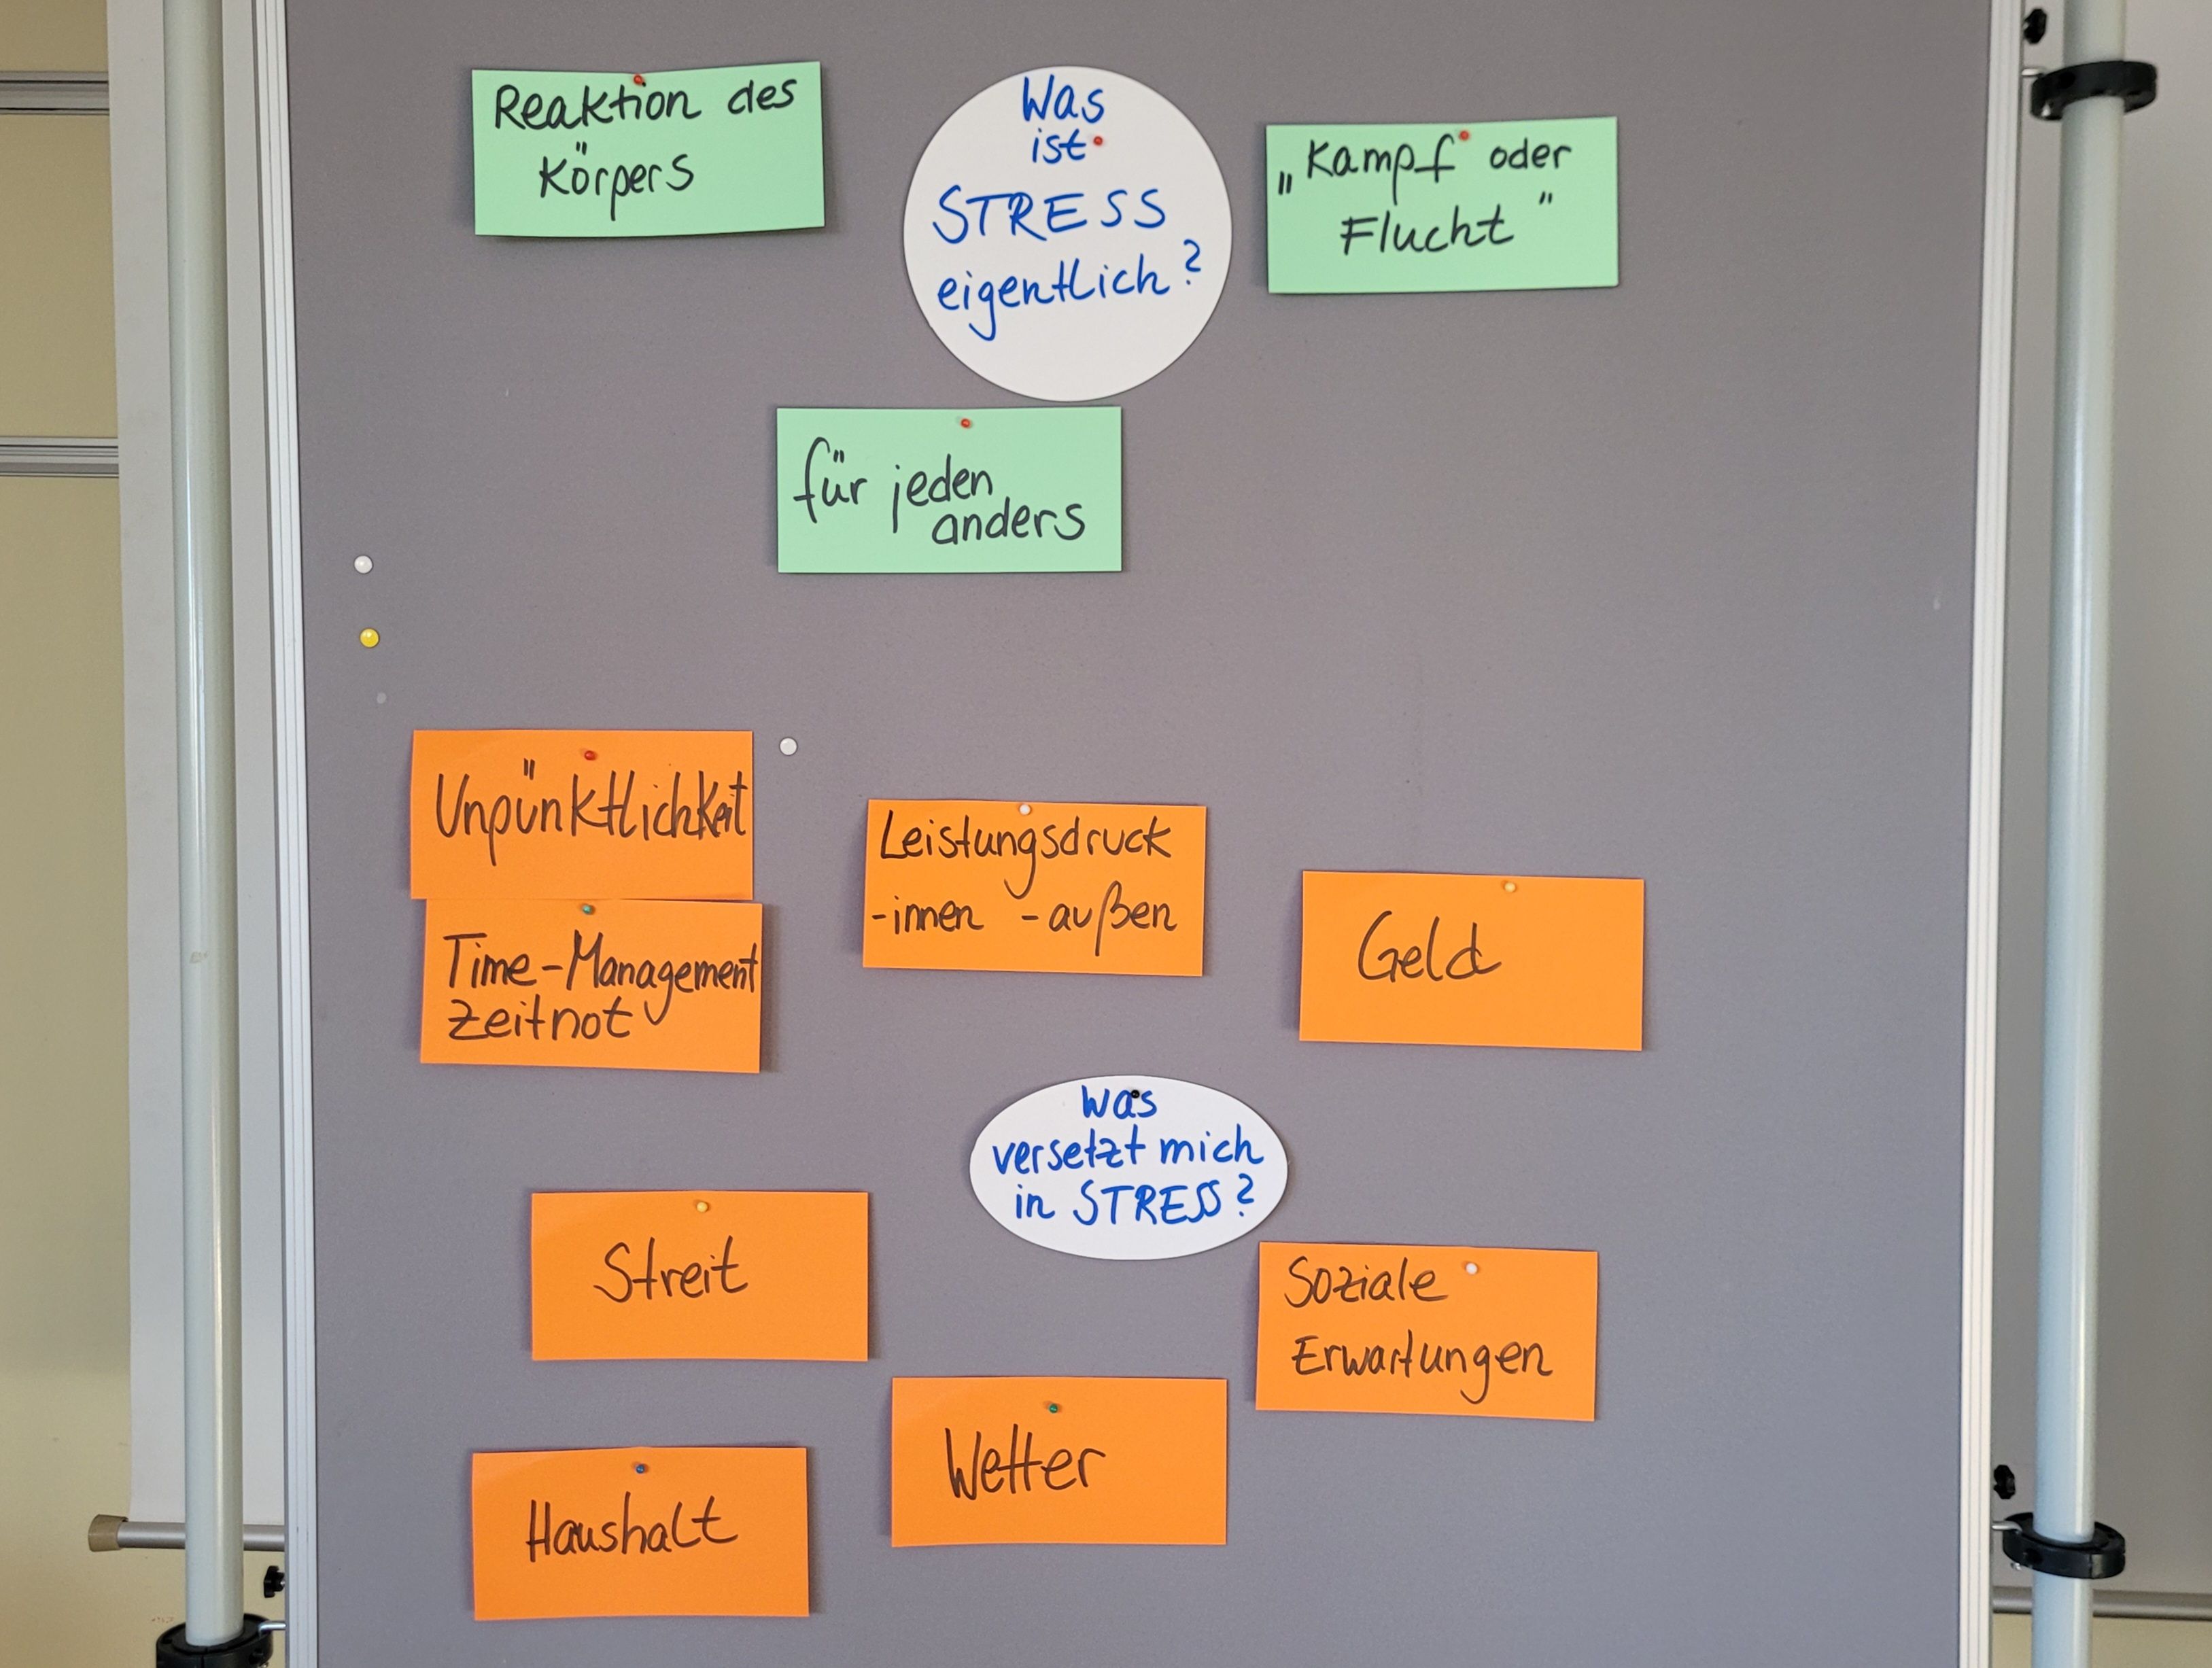 Reaktion des
Körpers
Was
ist
STRESS
eigentlich?
„Kampf oder
Flucht"
für jeden
anders
Unpünktlichkeit
Time-Management
Zeitnot
Leistungsdruck
-innen -außen
Geld
Was
versetzt mich
in STRESS?
Streit
Soziale
Erwartungen
Wetter
Haushalt